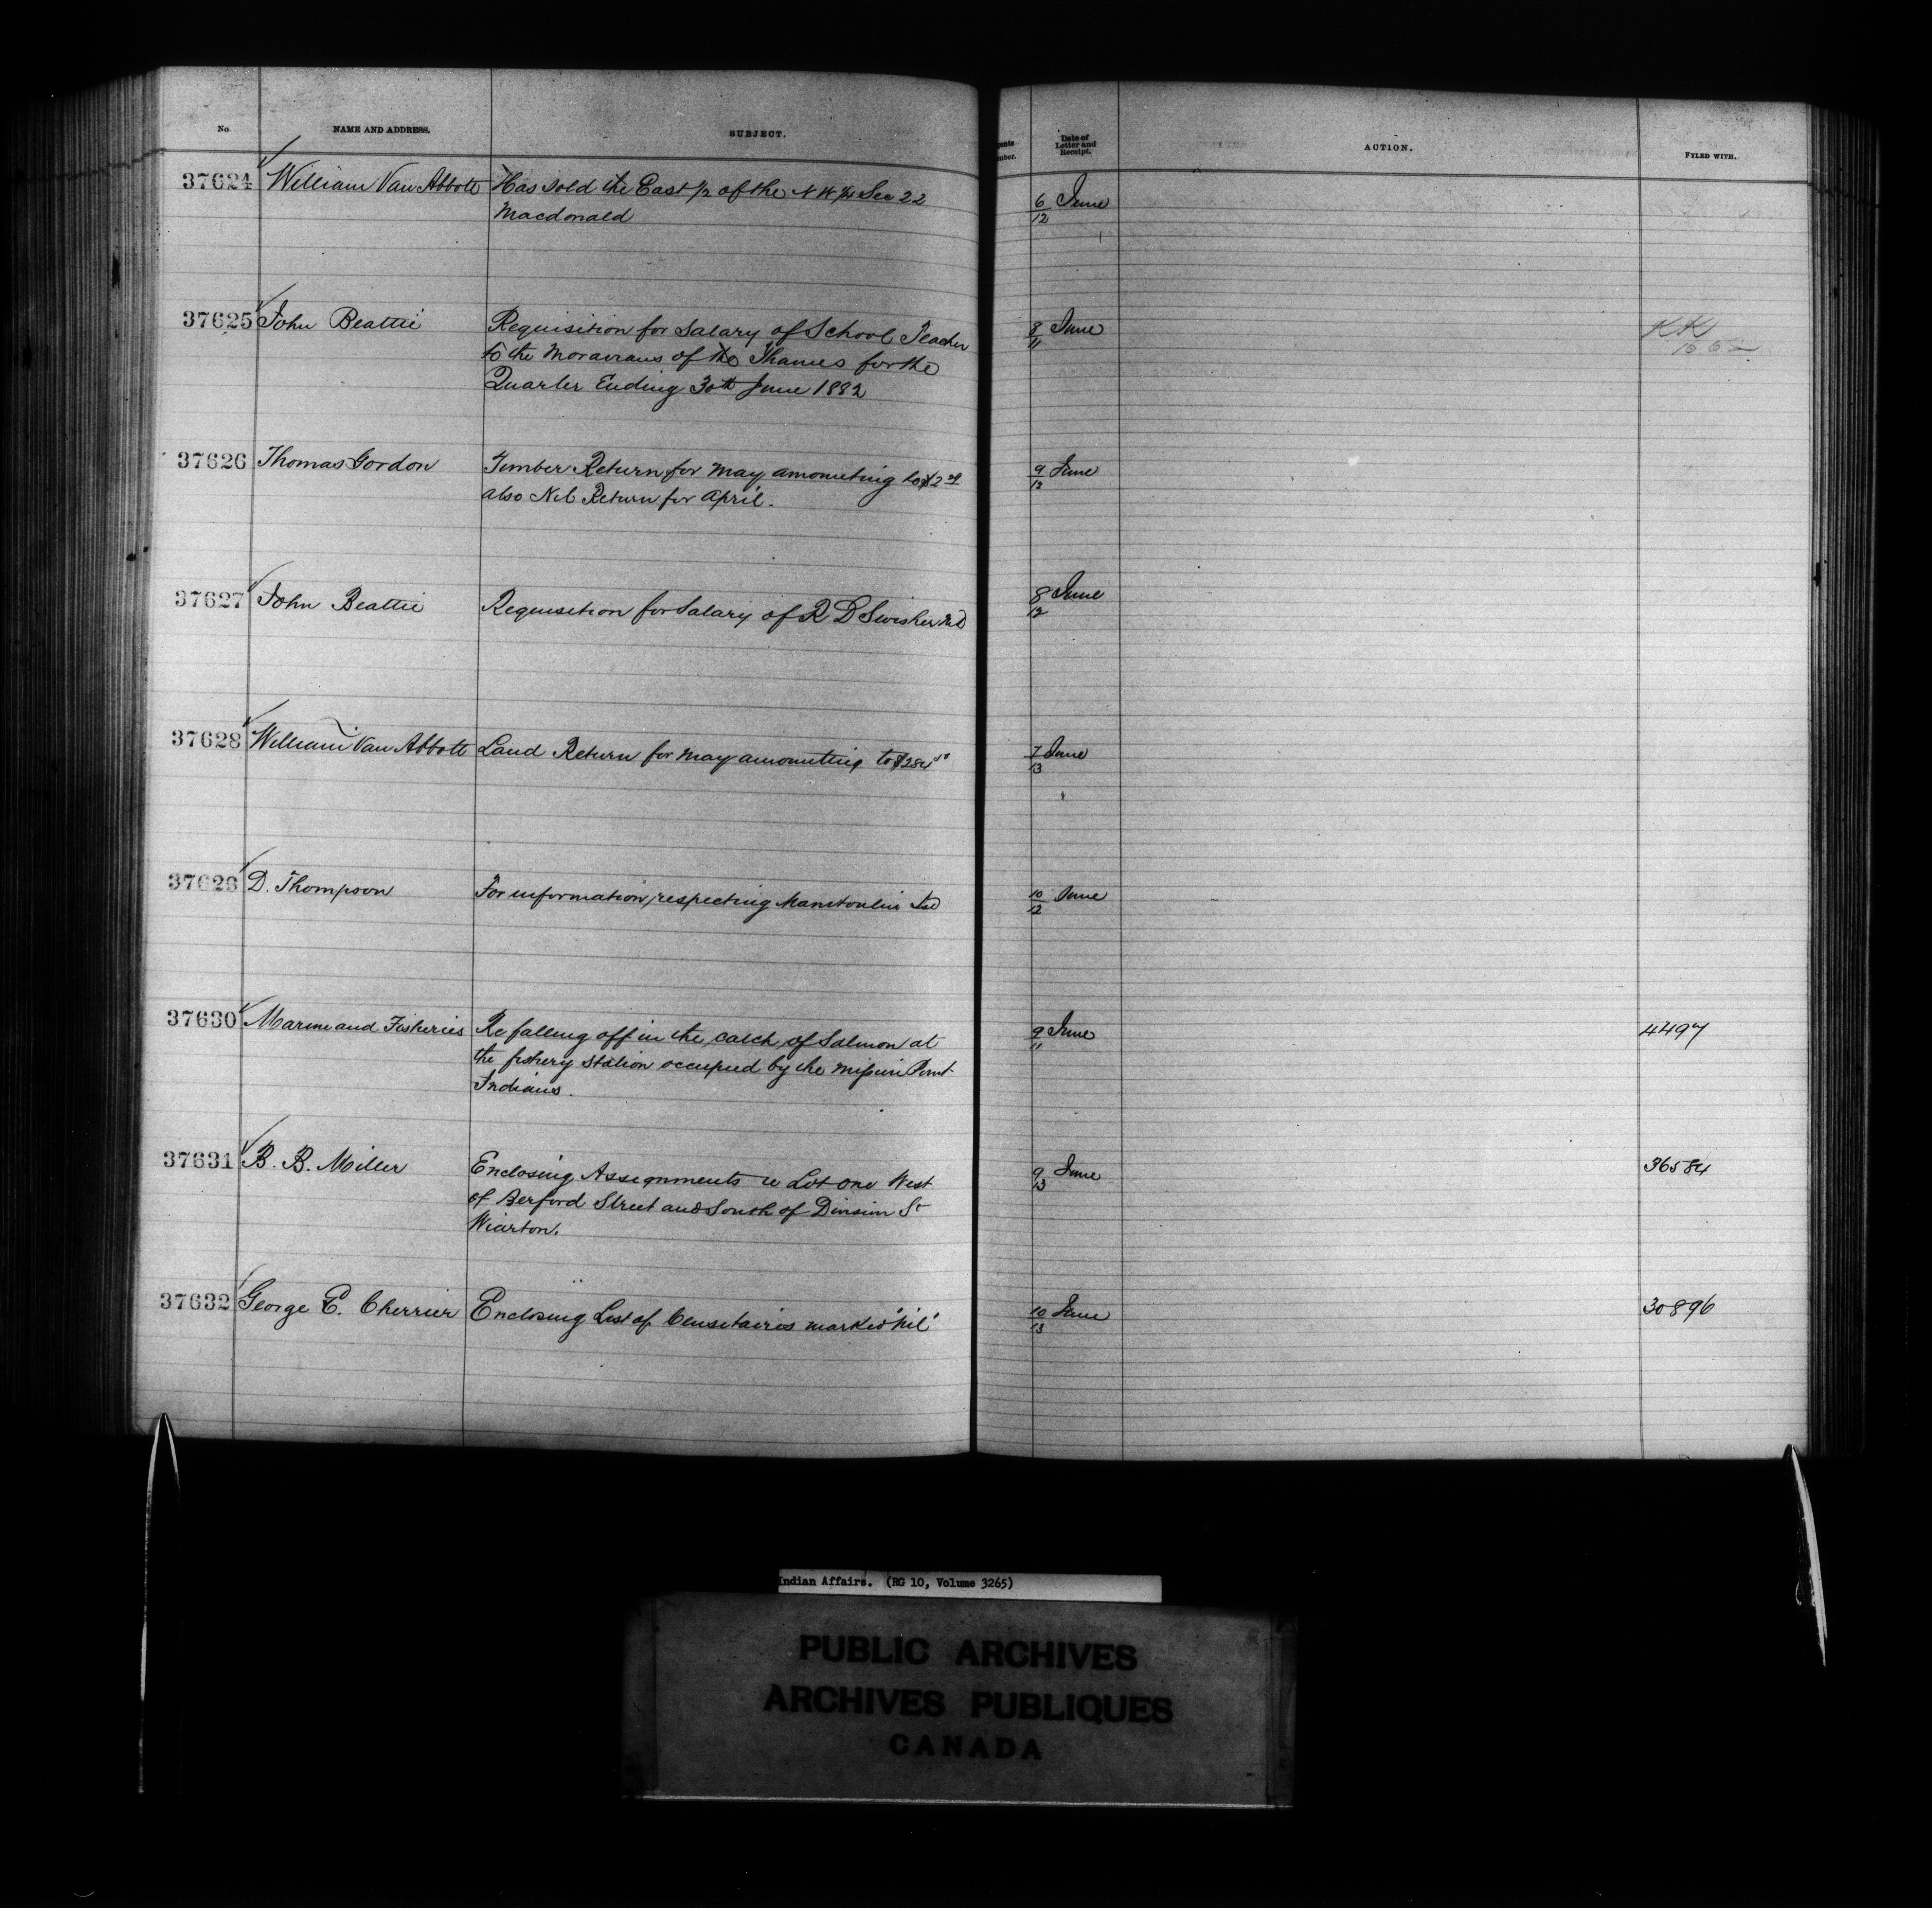 No. NAME AND ADDRESS. SUBJECT. Date of Letter and Receipt. ACTION. FYLED WITH.
37624 William Van Abbott Has sold the East 1/2 of the N W 1/4 Sec 22 6/12 June
Macdonald
37625 John Beattie Requisition for Salary of School Teacher 8/11 June KK
to the Moravians of the Thames for the
Quarter Ending 30th June 1882
37626 Thomas Gordon Timber Return for May amounting to $2 9/12 June
also Nil Return for April.
37627 John Beattie Requisition for Salary of R D Swisher MD 8/12 June
37628 William Van Abbott Land Return for May amounting to $284 7/13 June
37629 D. Thompson For information respecting Manitoulin Isd 10/12 June
37630 Marine and Fisheries Re falling off in the catch of Salmon at 9/11 June 4497
the fishery station occupied by the Mission Point
Indians.
37631 B. B. Miller Enclosing Assignments re Lot one West 9/13 June 36584
of Berford Street and South of Division St
Wiarton.
37632 George E. Cherrier Enclosing List of Censitaires marked "nil" 10/13 June 30896
Indian Affairs. (RG 10, Volume 3265)
PUBLIC ARCHIVES
ARCHIVES PUBLIQUES
CANADA